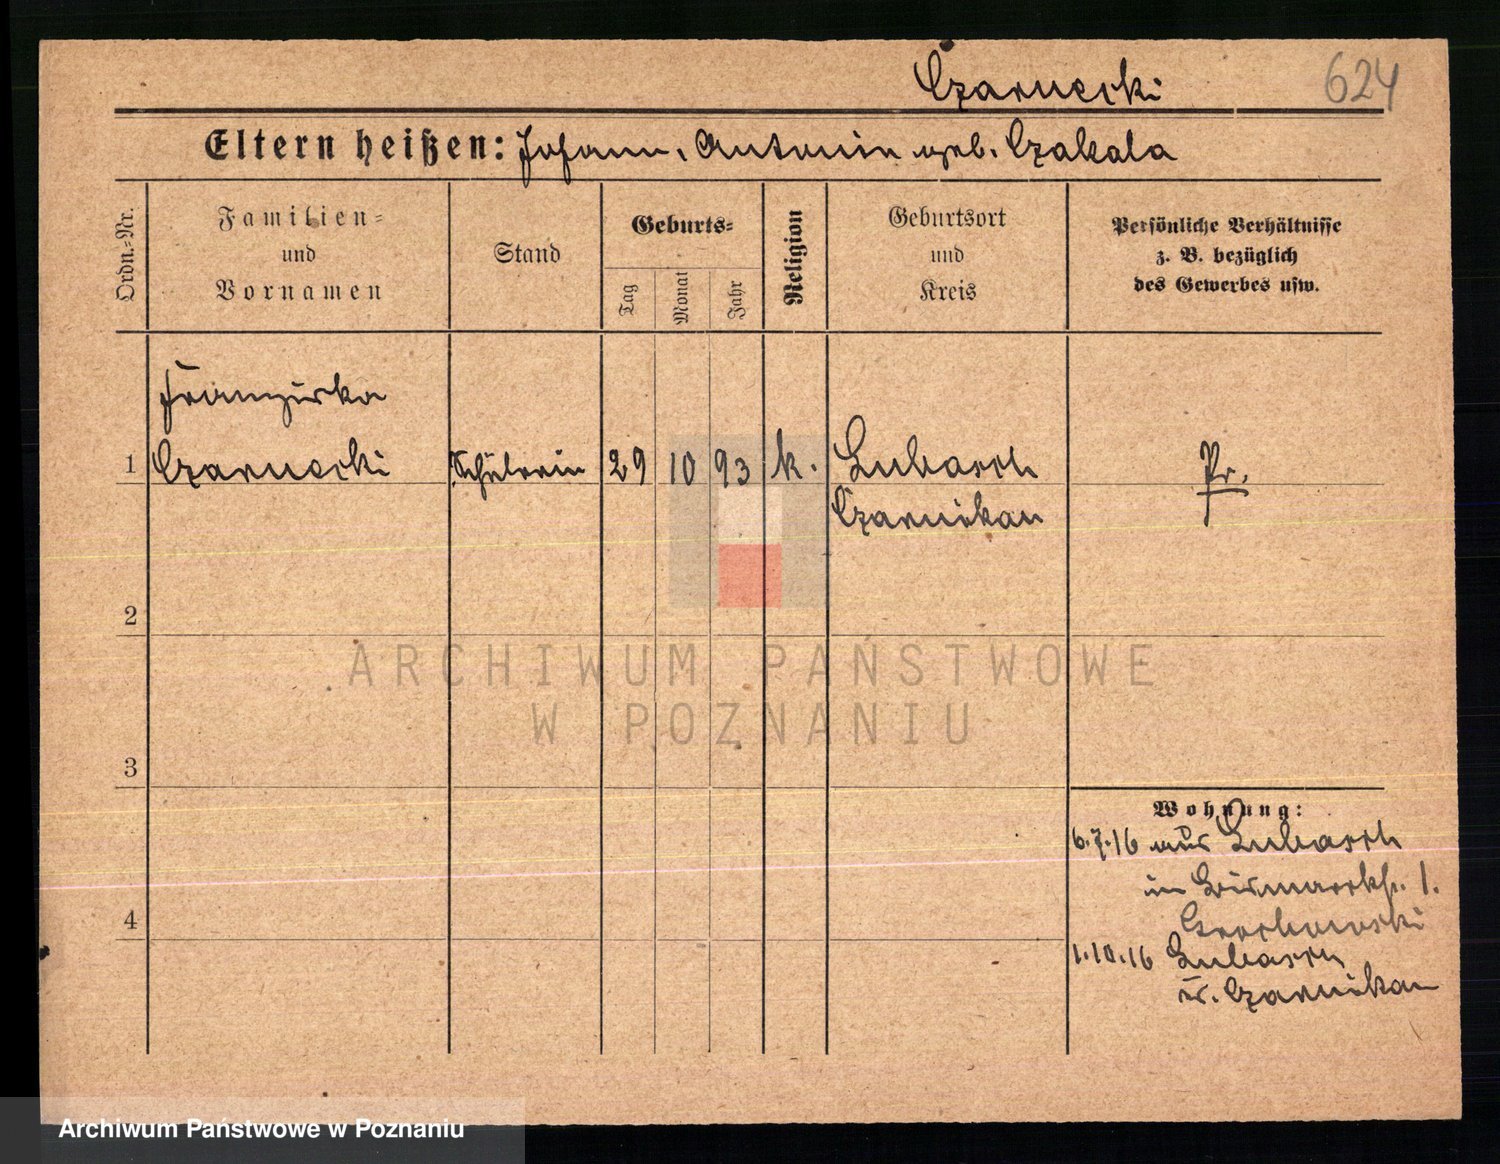 Czarnecki
624
Eltern heißen: Johann, Antonin geb. Czakala
Ordn.=Nr.
Familien=
und
Vornamen
Stand
Geburts=
Tag
Monat
Jahr
Religion
Geburtsort
und
Kreis
Persönliche Verhältnisse
z. B. bezüglich
des Gewerbes usw.
Franziska
1 Czarnecki Schülerin 29 10 93 k. Lubasch Pr.
Czarnikau
2
ARCHIWUM PAŃSTWOWE
W POZNANIU
3
Wohnung:
6.7.16 aus Lubasch
in Bismarckstr. 1.
Grochowski
4
1.10.16 Lubasch
Kr. Czarnikau
Archiwum Państwowe w Poznaniu